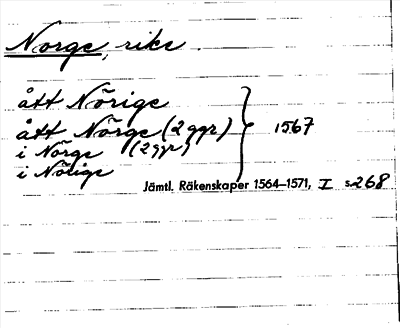 Norge, rike.
ått Nõrige
ått Nõrge (2 ggr) } 1567
i Nõrge (2 ggr)
i Nõrige
Jämtl. Räkenskaper 1564–1571, I s.268